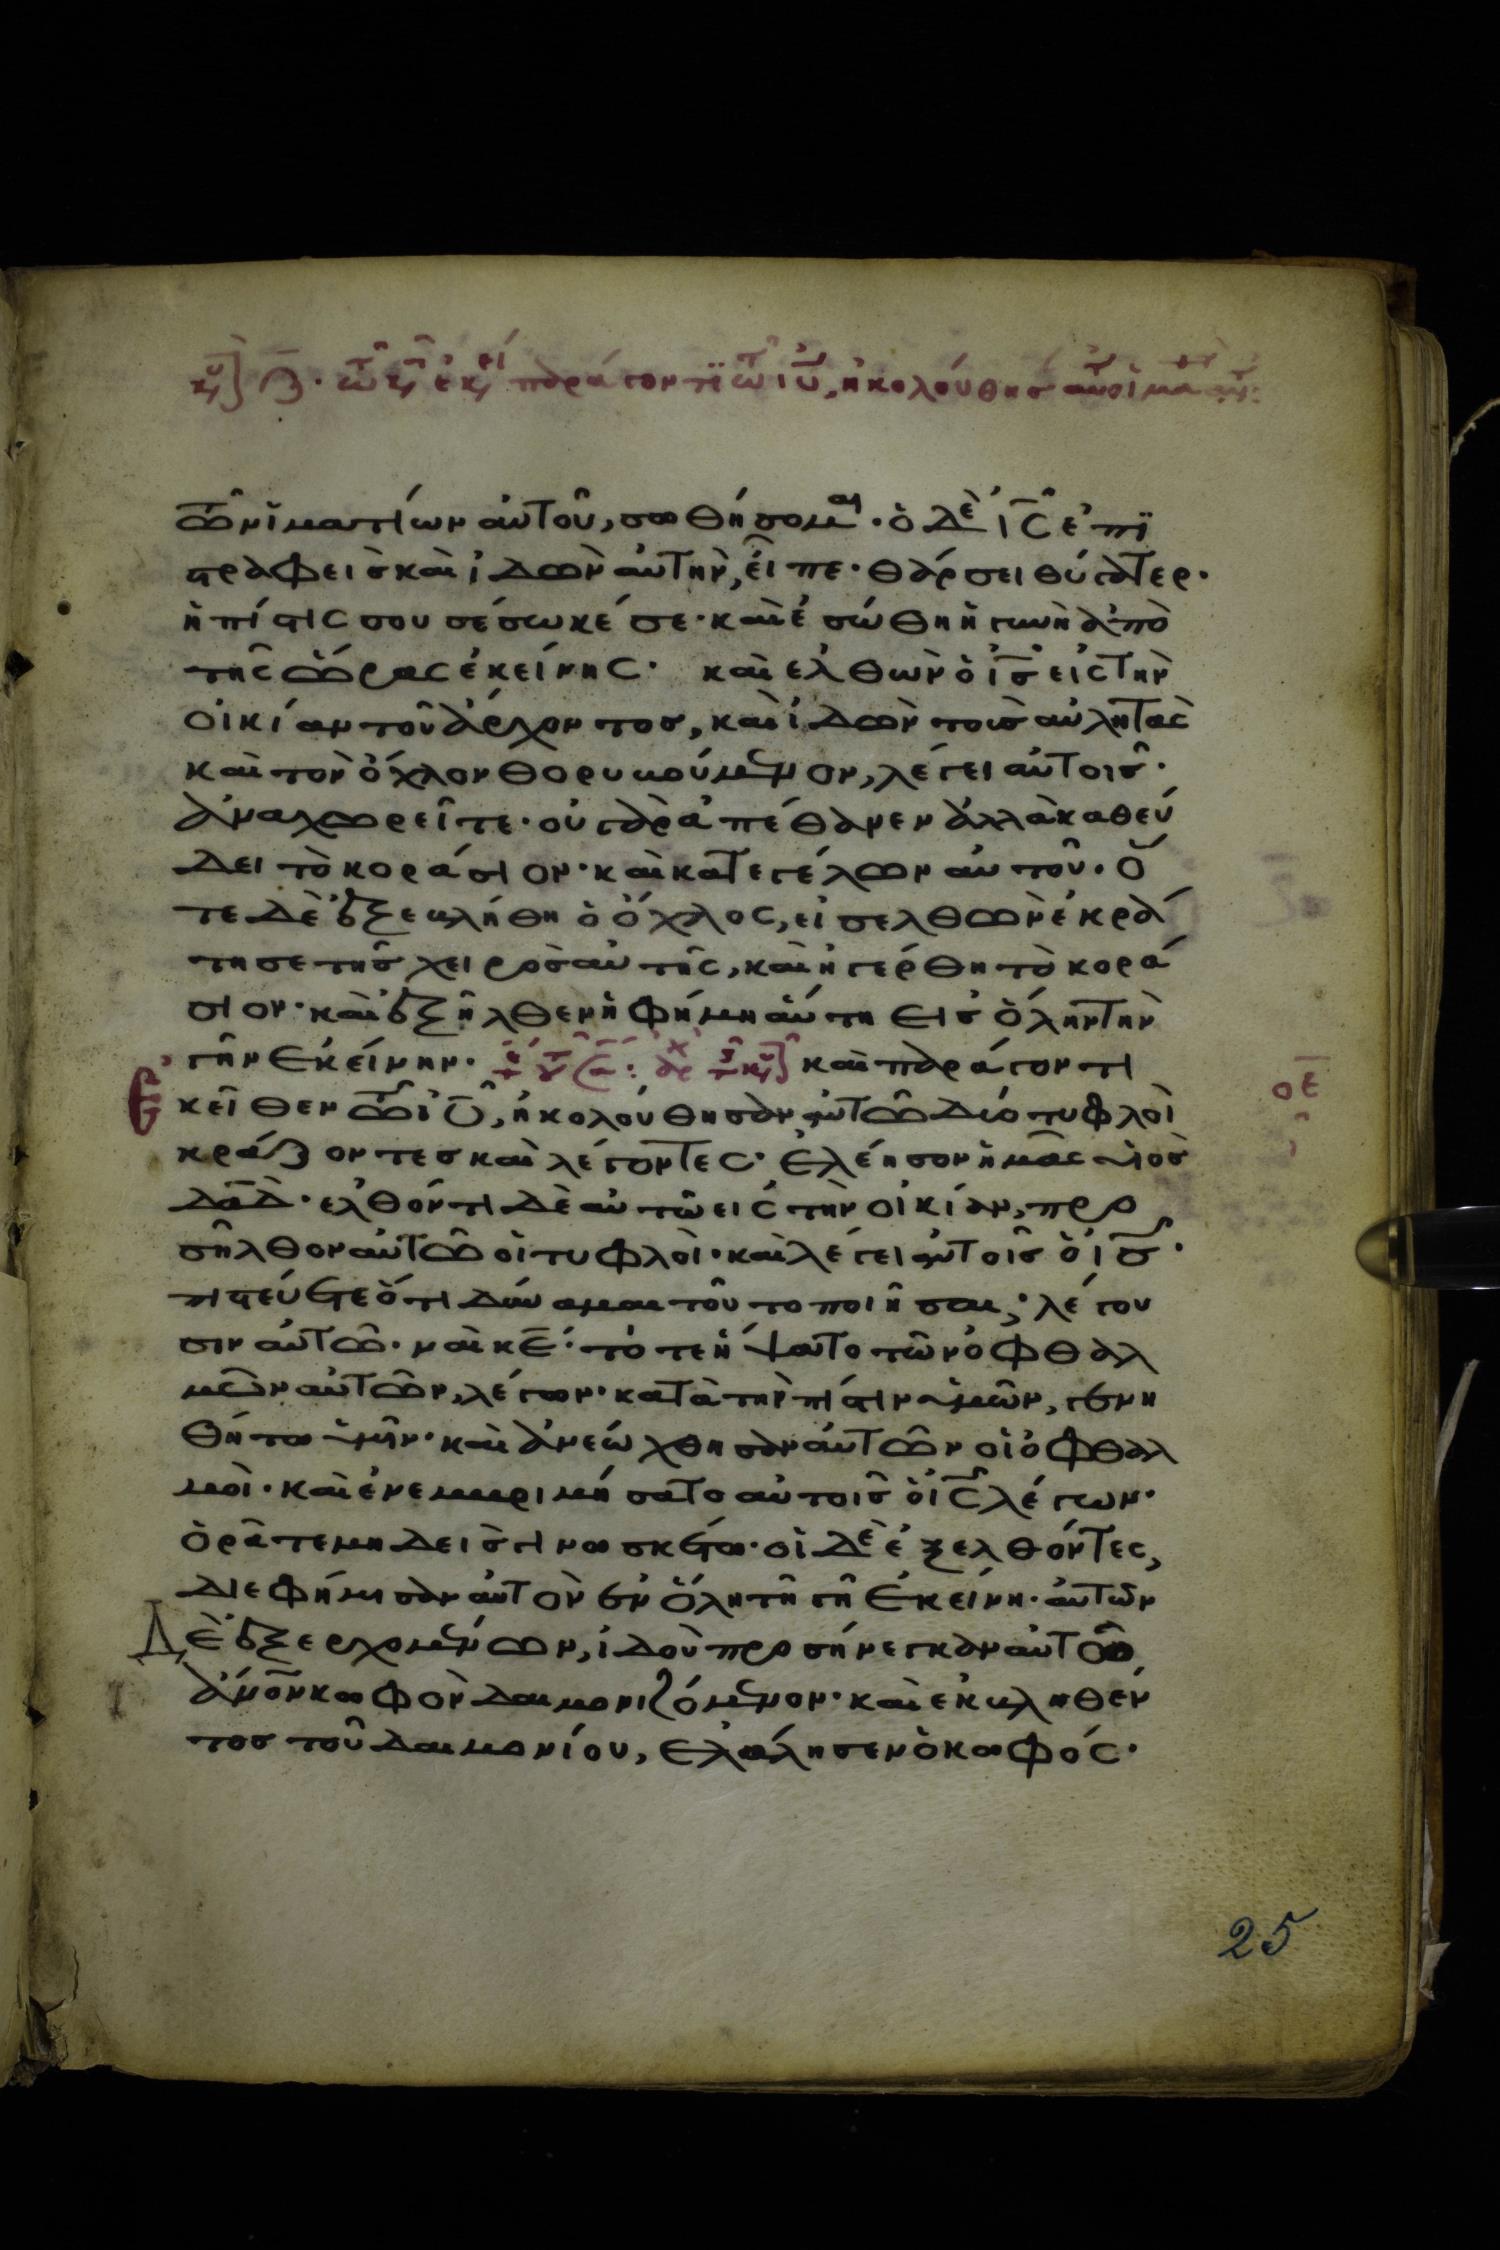 κυ ζ. τῶ κ ἐκ παράγοντι τῶ ιυ, ἠκολούθησ αυ
τῶν ἱματίων αὐτοῦ, σωθήσομαι· ὁ δὲ ις ἐπι
στραφεὶς καὶ ἰδὼν αὐτὴν, εἶπε· θάρσει θύγατερ·
ἡ πίστις σου σέσωκέ σε· καὶ ἐσώθη ἡ γυνὴ ἀπὸ
τῆς ὥρας ἐκείνης· καὶ ἐλθὼν ὁ ις εἰς τὴν
οἰκίαν τοῦ ἄρχοντος, καὶ ἰδὼν τοὺς αὐλητὰς
καὶ τὸν ὄχλον θορυβούμενον, λέγει αὐτοῖς·
ἀναχωρεῖτε· οὐ γὰρ ἀπέθανεν ἀλλὰ καθεύ
δει τὸ κοράσιον· καὶ κατεγέλων αὐτοῦ· ὅ
τε δὲ ἐξεβλήθη ὁ ὄχλος, εἰσελθὼν ἐκρά
τησε τῆς χειρὸς αὐτῆς, καὶ ἠγέρθη τὸ κορά
σιον· καὶ ἐξῆλθεν ἡ φήμη αὕτη εἰς ὅλην τὴν
γῆν ἐκείνην· καὶ παράγοντι
οε
ἐκεῖθεν τῶ ιυ, ἠκολούθησαν αὐτῶ δύο τυφλοὶ
κράζοντες καὶ λέγοντες· ἐλέησον ἡμᾶς υἱὸς
δαδ· ἐλθόντι δὲ αὐτῶ εἰς τὴν οἰκίαν, προ
σῆλθον αὐτῶ οἱ τυφλοὶ· καὶ λέγει αὐτοῖς ὁ ις·
πιστεύετε ὅτι δύναμαι τοῦτο ποιῆσαι; λέγου
σιν αὐτῶ· ναὶ κε· τότε ἥψατο τῶν ὀφθαλ
μῶν αὐτῶν, λέγων· κατὰ τὴν πίστιν ὑμῶν, γενη
θήτω ὑμῖν· καὶ ἀνεώχθησαν αὐτῶν οἱ ὀφθαλ
μοὶ· καὶ ἐνεβριμήσατο αὐτοῖς ὁ ις λέγων·
ὁρᾶτε μηδεὶς γινωσκέτω· οἱ δὲ ἐξελθόντες,
διεφήμισαν αὐτὸν ἐν ὅλη τῆ γῆ ἐκείνη· αὐτῶν
Δὲ ἐξερχομένων, ἰδοὺ προσήνεγκαν αὐτῶ
ἄνον κωφὸν δαιμονιζόμενον· καὶ ἐκβληθέν
τος τοῦ δαιμονίου, ἐλάλησεν ὁ κωφός·
25